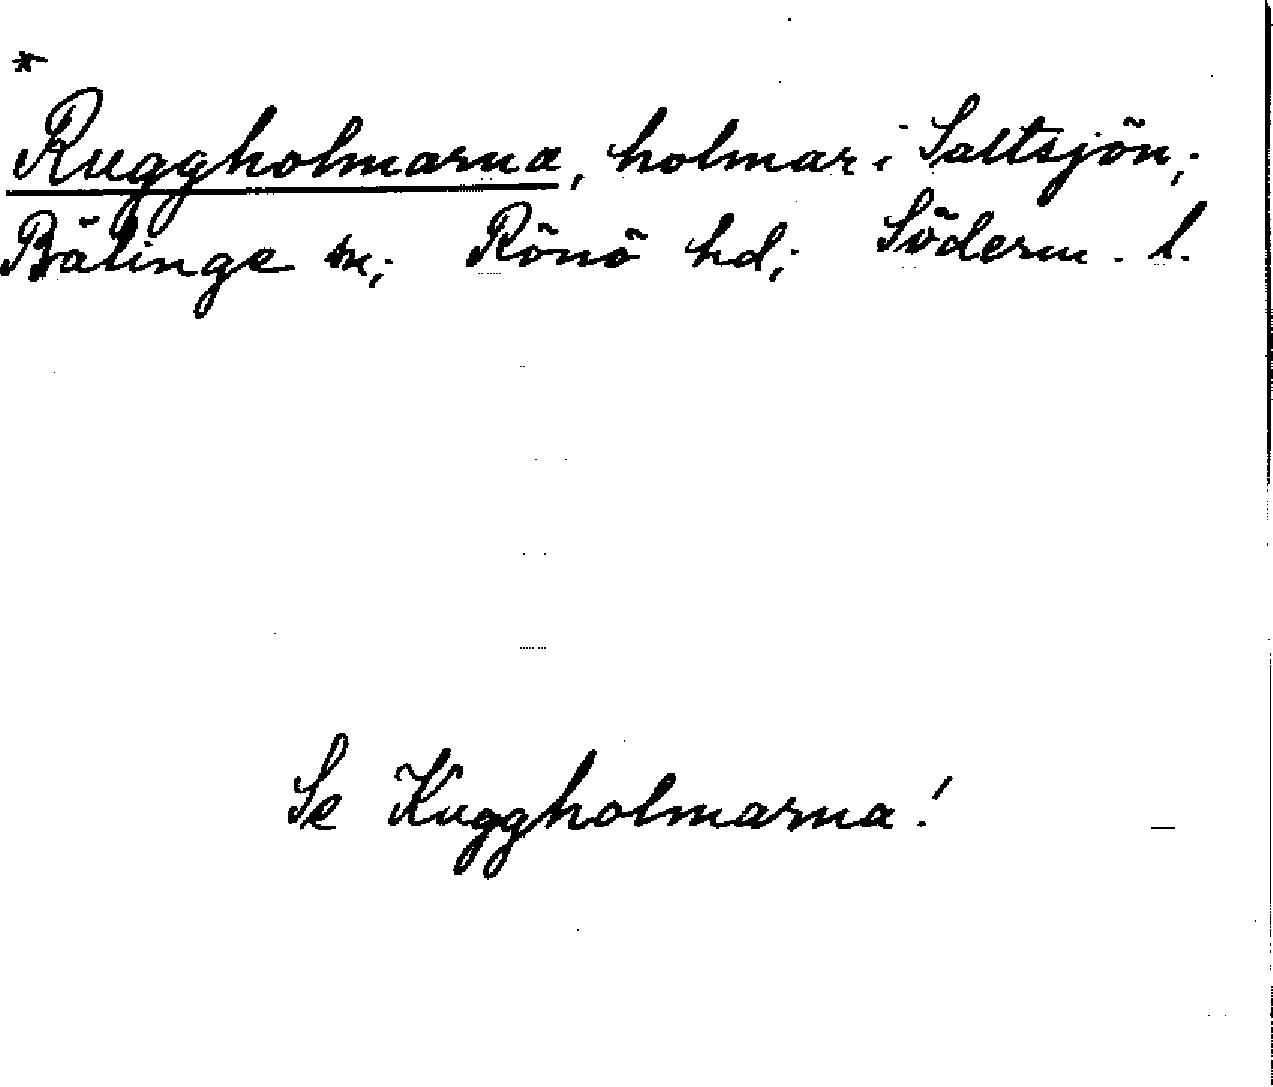 *
Ruggholmarna, holmar i Saltsjön;
Bälinge sn; Rönö hd; Söderm. l.
Se Kuggholmarna!